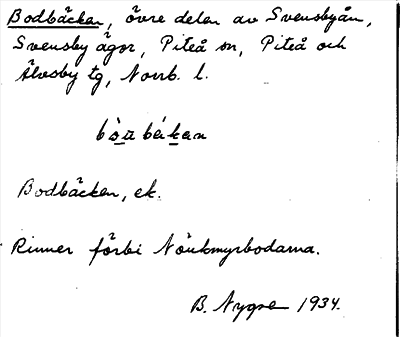 Bodbäcken, övre delen av Svensbyån,
Svensby ägor, Piteå sn, Piteå och
Älvsby tg, Norrb. l.
Bodbäcken, ek.
Rinner förbi Nöukmyrbodarna.
B. Nygre 1934.